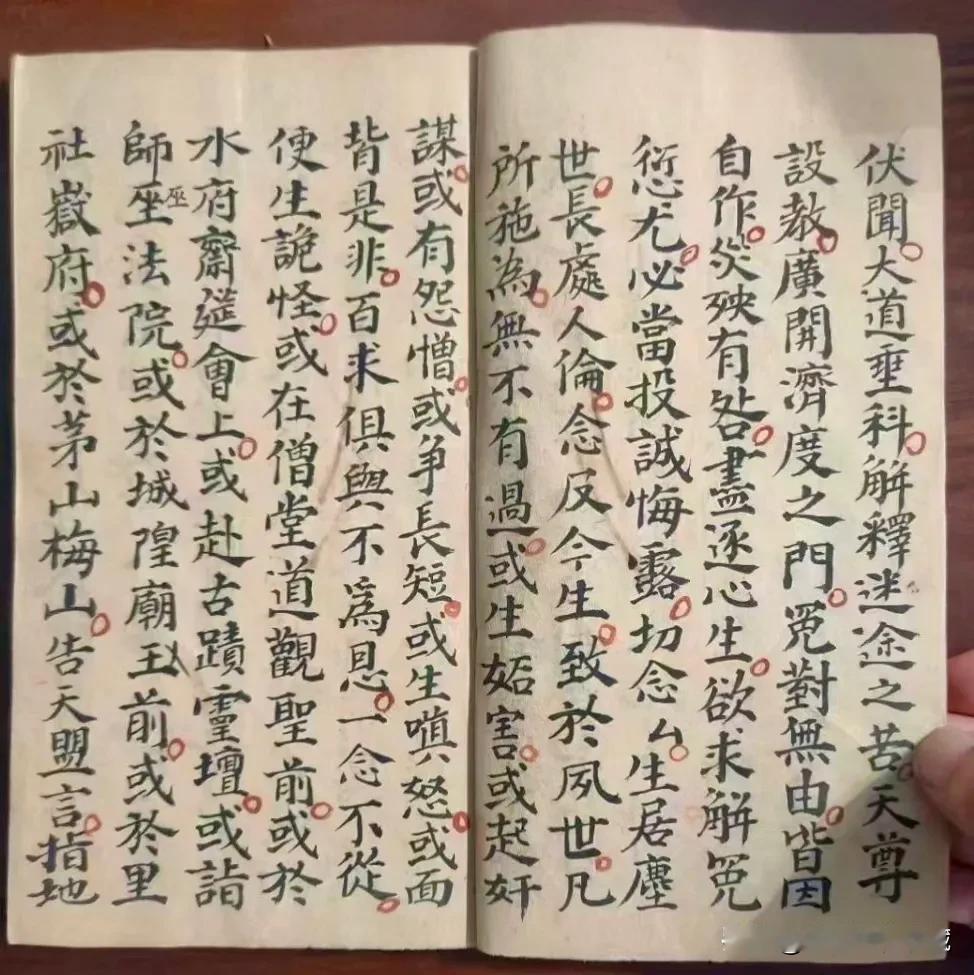 伏聞大道垂科解釋迷途之苦天尊
設教廣開濟度之門冤對無由皆因
自作災殃有咎盡逐心生欲求解冤
愆尤必當投誠悔露切念厶生居塵
世長處人倫念反今生致於夙世凡
所施為無不有過或生妬害或起奸
謀或有怨憎或争長短或生嗔怒或面
背是非百求俱與不爲恩一念不從
便生詭怪或在僧堂道觀聖前或於
水府齋筵會上或赴古蹟靈壇或詣
師座巫法院或於城隍廟王前或於里
社嶽府或於茅山梅山告天盟言指地
藏